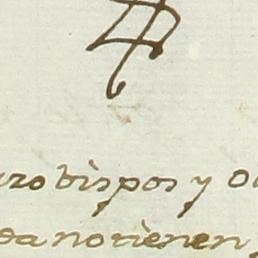 rzobispos y O
da no tienen